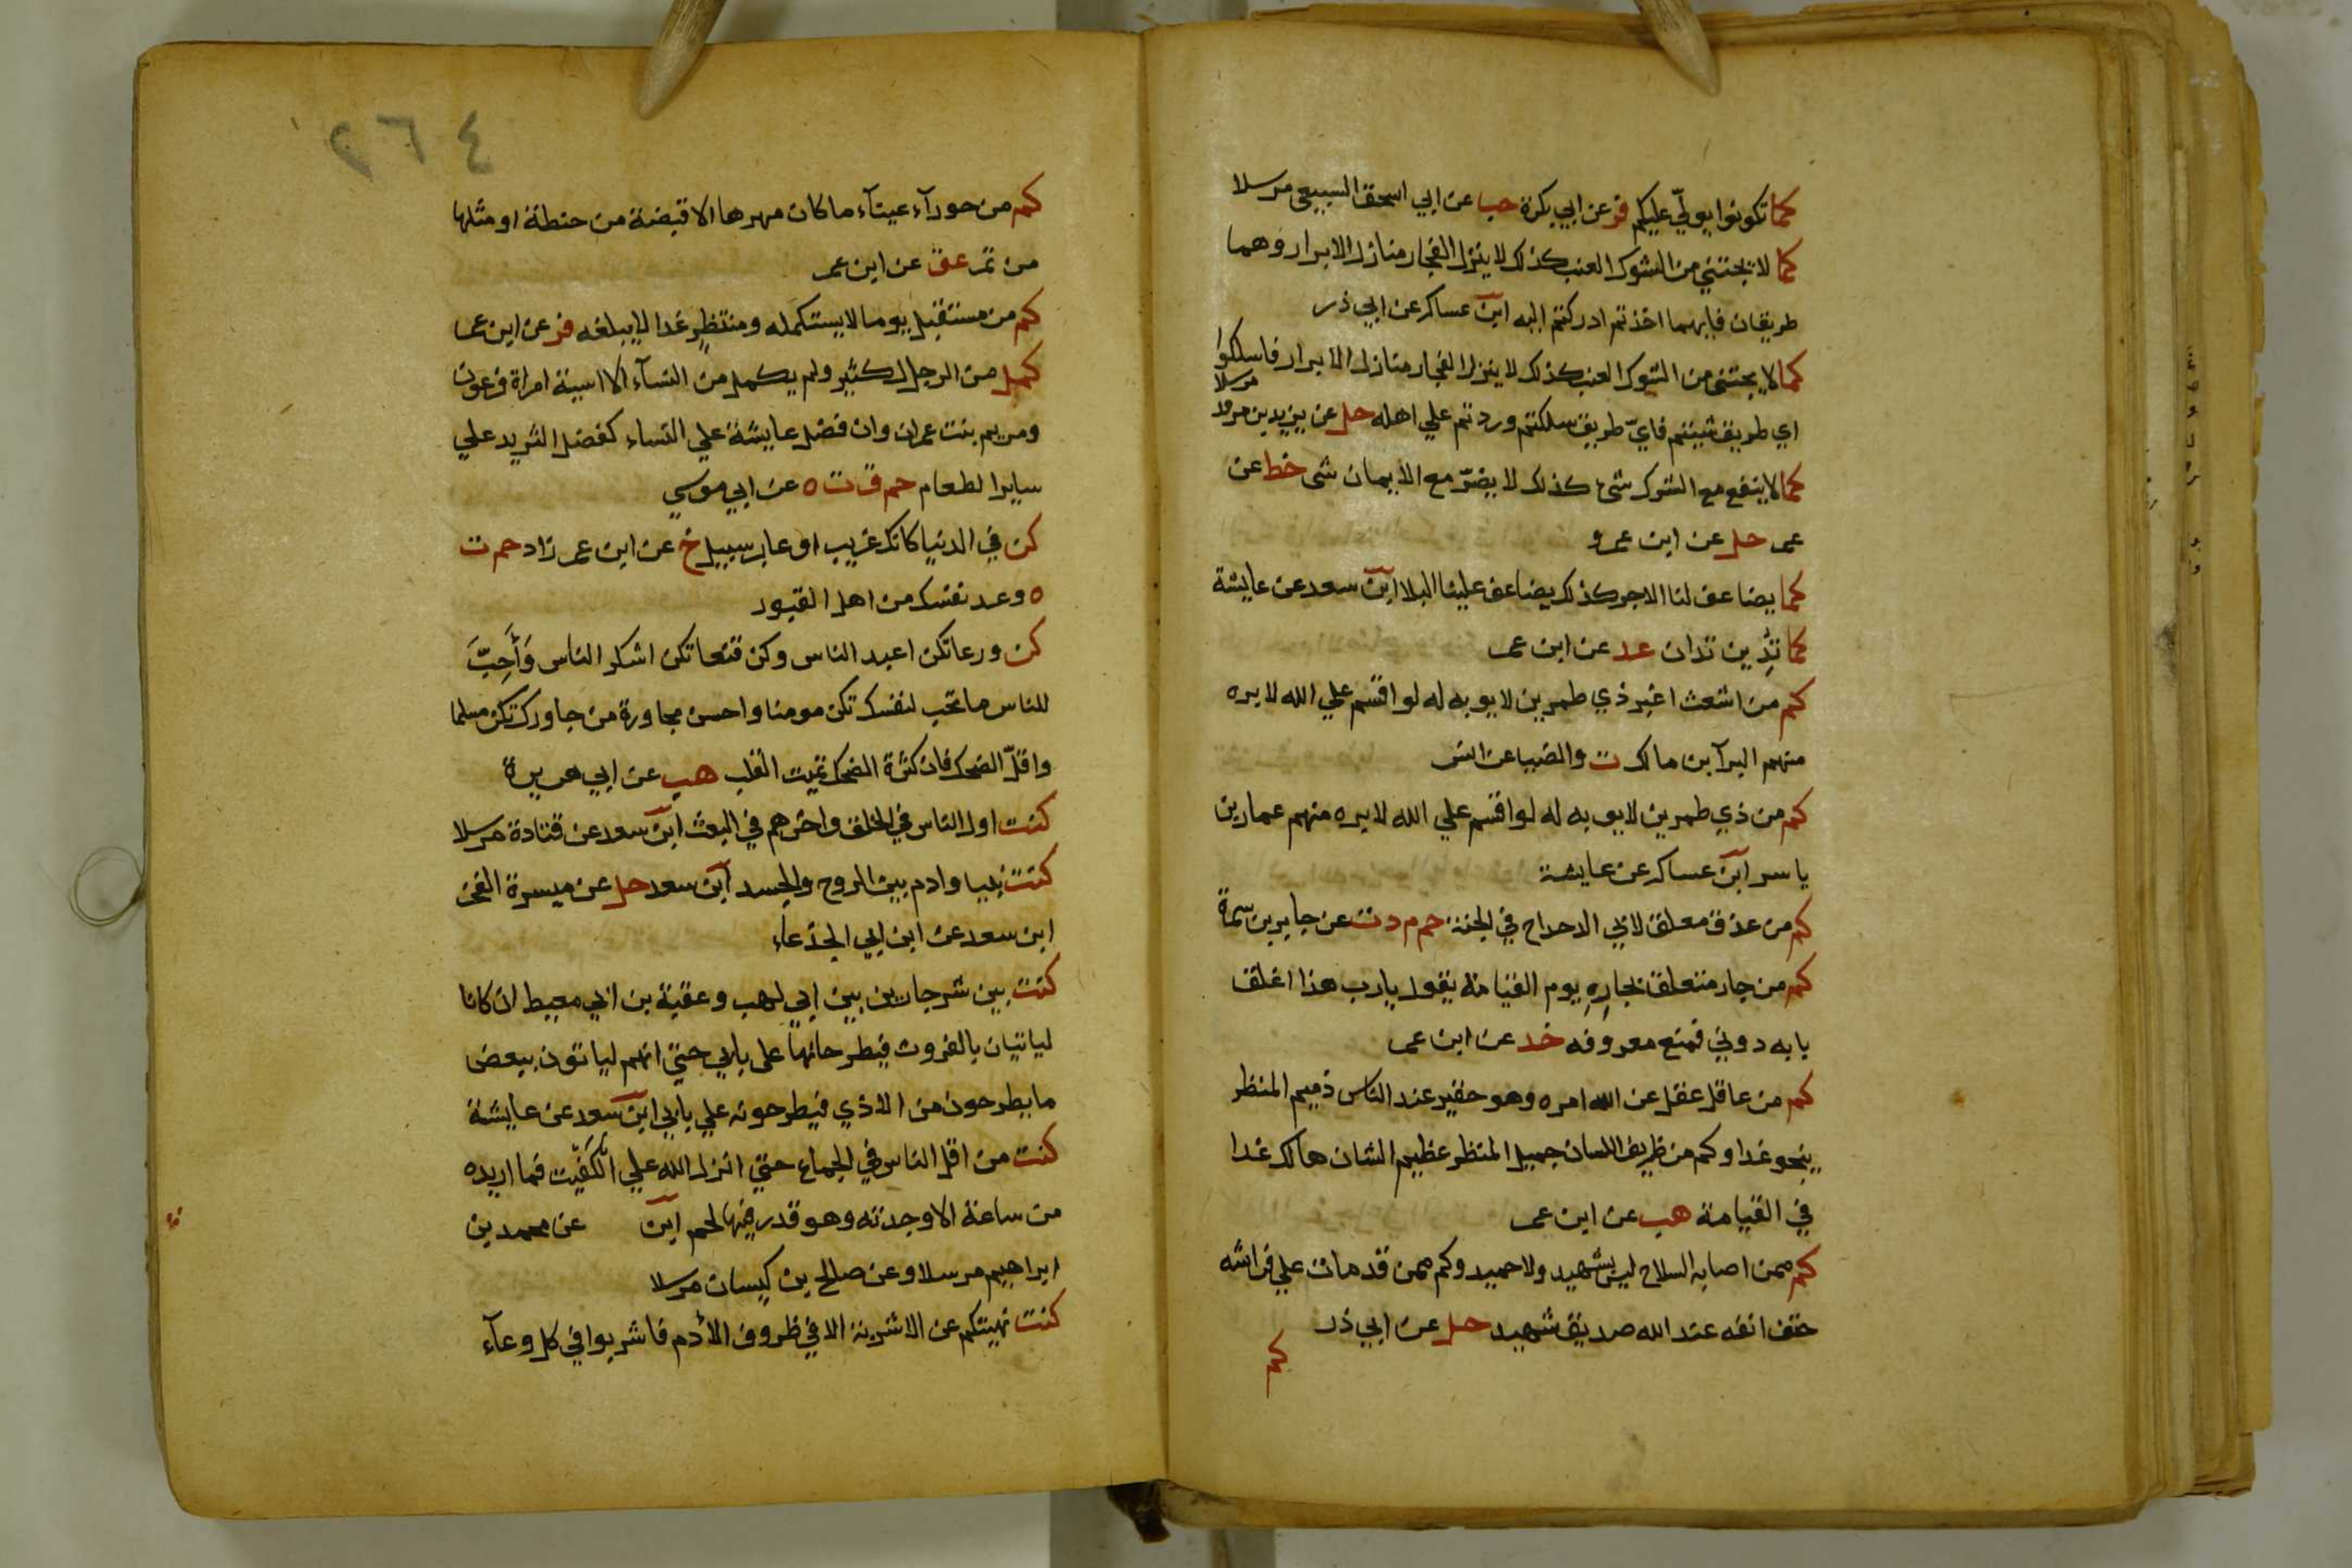 كما تكونوا يولّي عليكم فر عن ابي بكرة حب عن ابي اسحق السبيعي مرسلا
كما لا يجتني من الشوك العنب كذلك لا ينزل الفجار منازل الابرار وهما
طريقان فايهما اخذتم ادركتم اليه ابن عساكر عن ابي ذر
كما لا يجتنى من الشوك العنب كذلك لا ينزل الفجار منازل الابرار فاسلكوا
اي طريق شيتم فايّ طريق سلكتم وردتم علي اهله حل عن يزيد بن مرثد مرسلا
كما لا ينفع مع الشرك شئ كذلك لا يضرّ مع الايمان شى خط عن
عمر حل عن ابن عمرو
كما يضاعف لنا الاجر كذلك يضاعف علينا البلا ابن سعد عن عايشة
كما تَدِين تدان عد عن ابن عمر
كم من اشعث اغبر ذي طمرين لا يوبه له لو اقسم علي الله لابره
منهم البرآ بن مالك ت والضيا عن انس
كم من ذي طمرين لا يوبه له لو اقسم علي الله لابره منهم عمار بن
ياسر ابن عساكر عن عايشة
كم من عذق معلق لابي الدحداح في الجنة حم م د ت عن جابر بن سمرة
كم من جار متعلق بجارِهِ يوم القيامة يقول يا رب هذا اغلق
بابه دوني فمنع معروفه خد عن ابن عمر
كم من عاقل عقل عن الله امره وهو حقير عند الناس ذميم المنظر
ينجو غدا وكم من ظريف اللسان جميل المنظر عظيم الشان هالك غدا
في القيامة هب عن ابن عمر
كم ممن اصابه السلاح ليس بشهيد ولا حميد وكم ممن قد مات علي فراشه
حتف انفه عند الله صديق شهيد حل عن ابي ذر
كم
٢٦٤
كم من حورآء عينآء ما كان مهرها الا قبضة من حنطة او مثلها
من تمر عق عن ابن عمر
كم من مستقبل يوما لا يستكمله ومنتظر غدا لا يبلغه فر عن ابن عمر
كمل من الرجال كثير ولم يكمل من النسآء الا اسية امراة فرعون
ومريم بنت عمران وان فضل عايشة علي النساء كفضل الثريد علي
ساير الطعام حم ق ت ه عن ابي موسي
كن في الدنيا كانك غريب او عابر سبيل خ عن ابن عمر زاد حم ت
ه وعد نفسك من اهل القبور
كن ورعا تكن اعبد الناس وكن قنعا تكن اشكر الناس وَأَحِبَّ
للناس ما تحب لنفسك تكن مومنا واحسن مجاورة من جاورك تكن مسلما
واقلّ الضحك فان كثرة الضحك تميت القلب هب عن ابي هريرة
كنت اول الناس في الخلق واخرهم في البعث ابن سعد عن قتادة مرسلا
كنت نبيا وادم بين الروح والجسد ابن سعد حل عن ميسرة الفجر
ابن سعد عن ابن ابي الجدعاء
كنت بين شر جارين بين ابي لهب وعقبة بن ابي معيط ان كانا
لياتيان بالفروث فيطرحانها على بابي حتي انهم لياتون ببعض
ما يطرحون من الاذي فيطرحونه علي بابي ابن سعد عن عايشة
كنت من اقل الناس في الجماع حتي انزل الله علي الكَفِيّت فما اريده
من ساعة الا وجدته وهو قدر فيها لحم ابن عن محمد بن
ابراهيم مرسلا وعن صالح بن كيسان مرسلا
كنت نهيتكم عن الاشربة الا في ظروف الأدم فاشربوا في كل وعآء